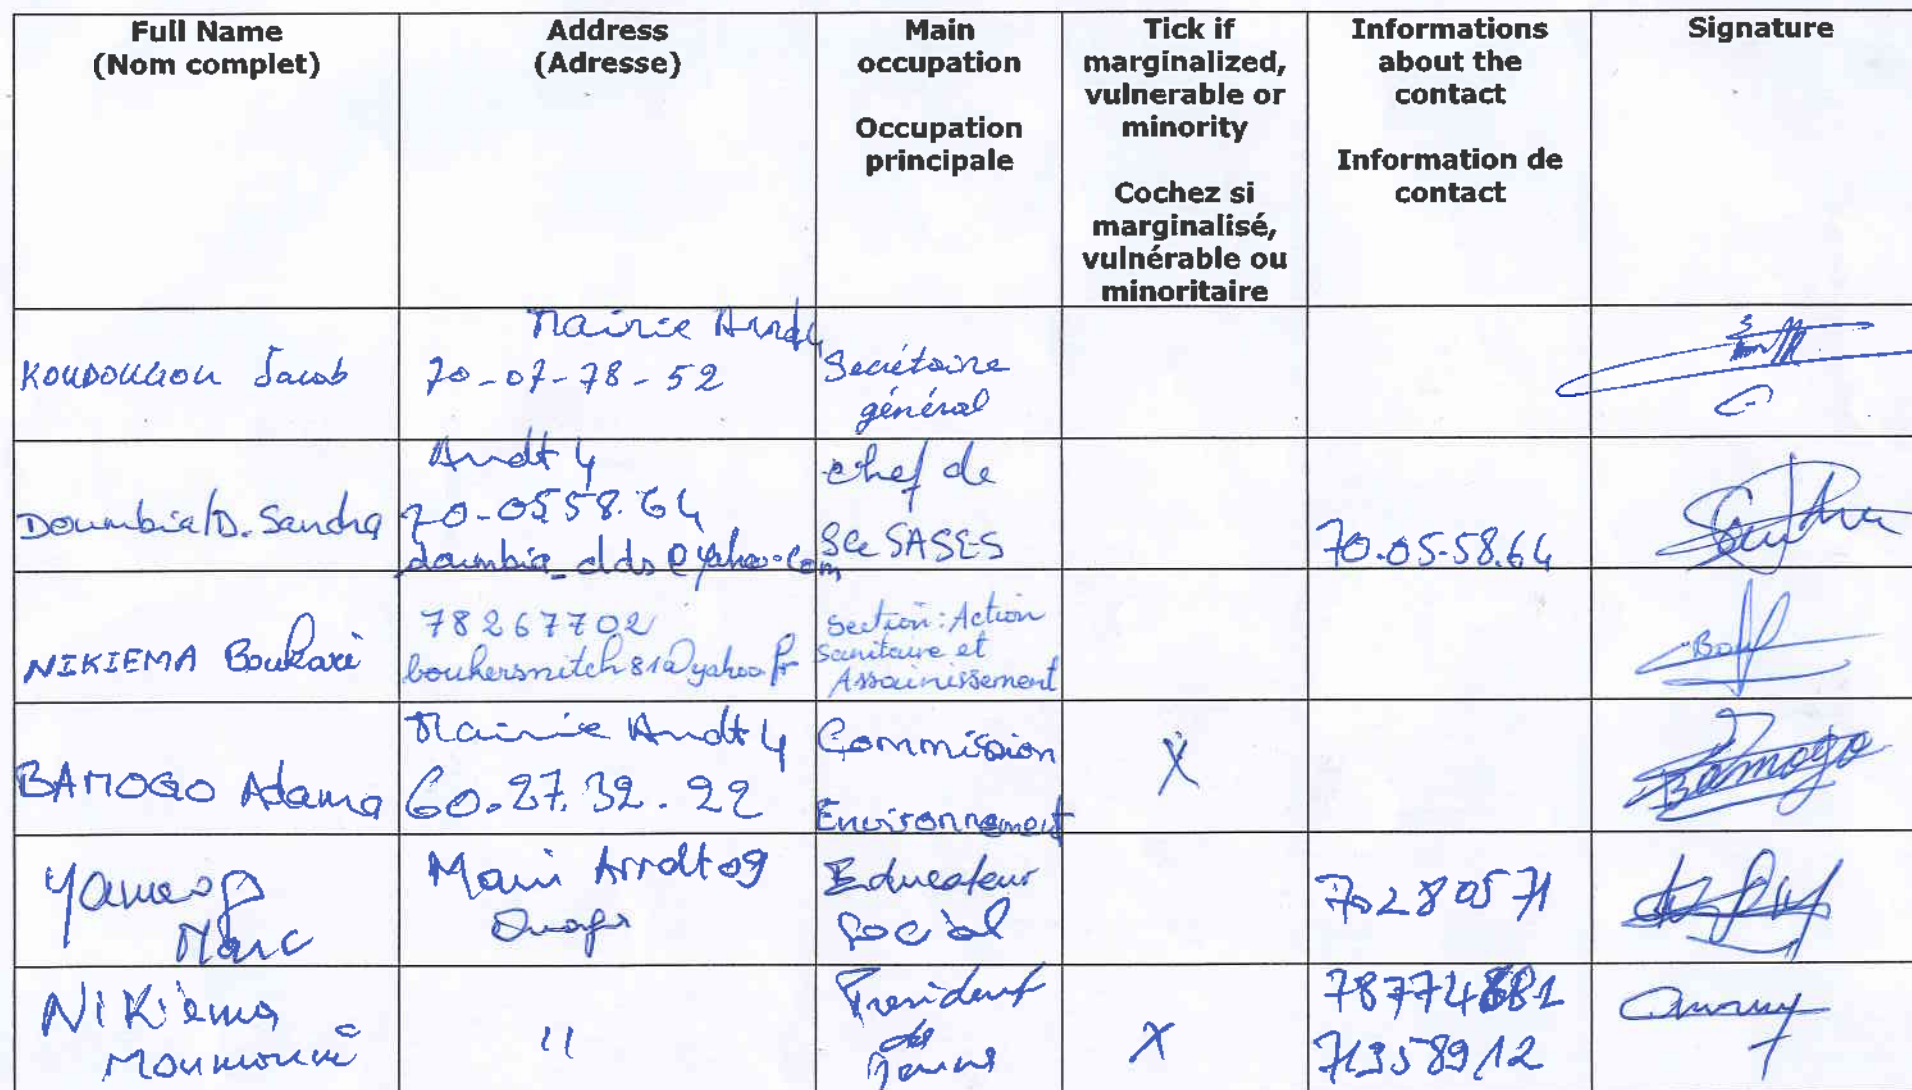 Full Name
(Nom complet)
Address
(Adresse)
Main
occupation
Occupation
principale
Tick if
marginalized,
vulnerable or
minority
Cochez si
marginalisé,
vulnérable ou
minoritaire
Informations
about the
contact
Information de
contact
Signature
KOUDOUGOU Jacob
Mairie Arrdt 4
70-07-78-52
Secrétaire
général
Doumbia/D. Sandra
Arrdt 4
70-05.58.64
doumbia_dds@yahoo.com
chef de
Sce SASES
70.05-58.64
NIKIEMA Boukaré
78267702
boukersmitch81@yahoo.fr
Section: Action
Sanitaire et
Assainissement
BAMOGO Adama
Mairie Arrdt 4
60.27.32.22
Commission
Environnement
X
Bamogo
Yameogo
Marc
Mairi Arrdt 09
Ouaga
Educateur
Social
70280571
NIKiema
Moumouni
"
President
des
Jeunes
X
71358912